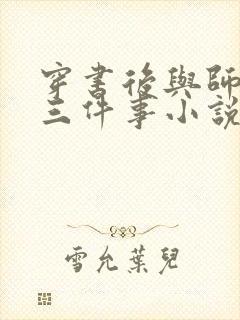 穿書後與師
三件事小說
雪允葉兒